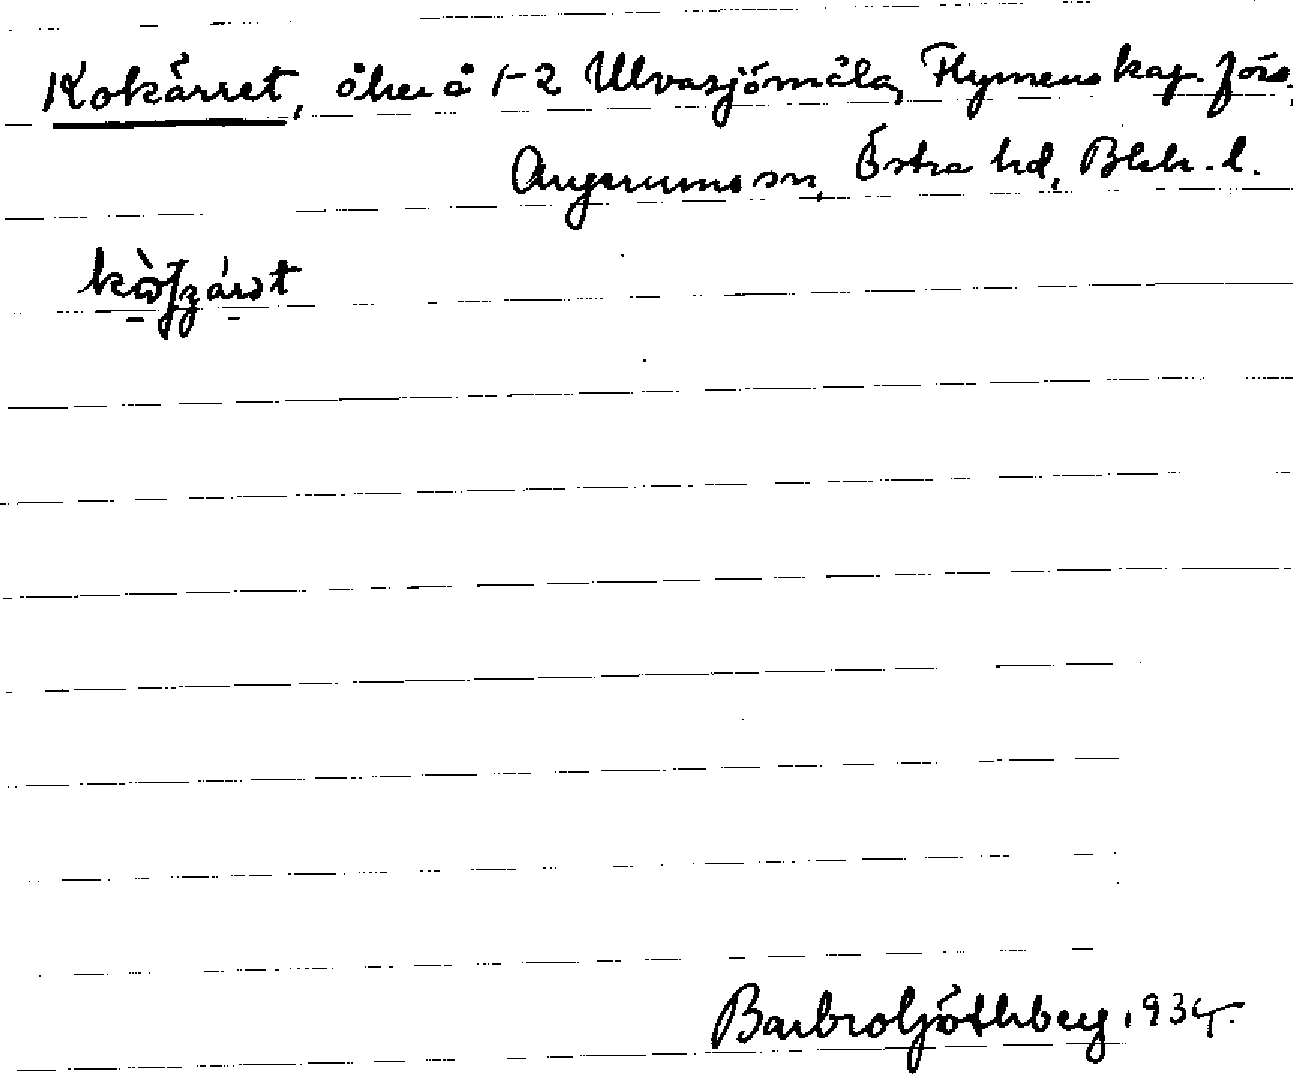 Kokärret, åker å 1-2 Ulvasjömåla, Flymens kap. förs.,
Augerums sn, Östra hd, Blek. l.
Barbro Göthberg 1934.